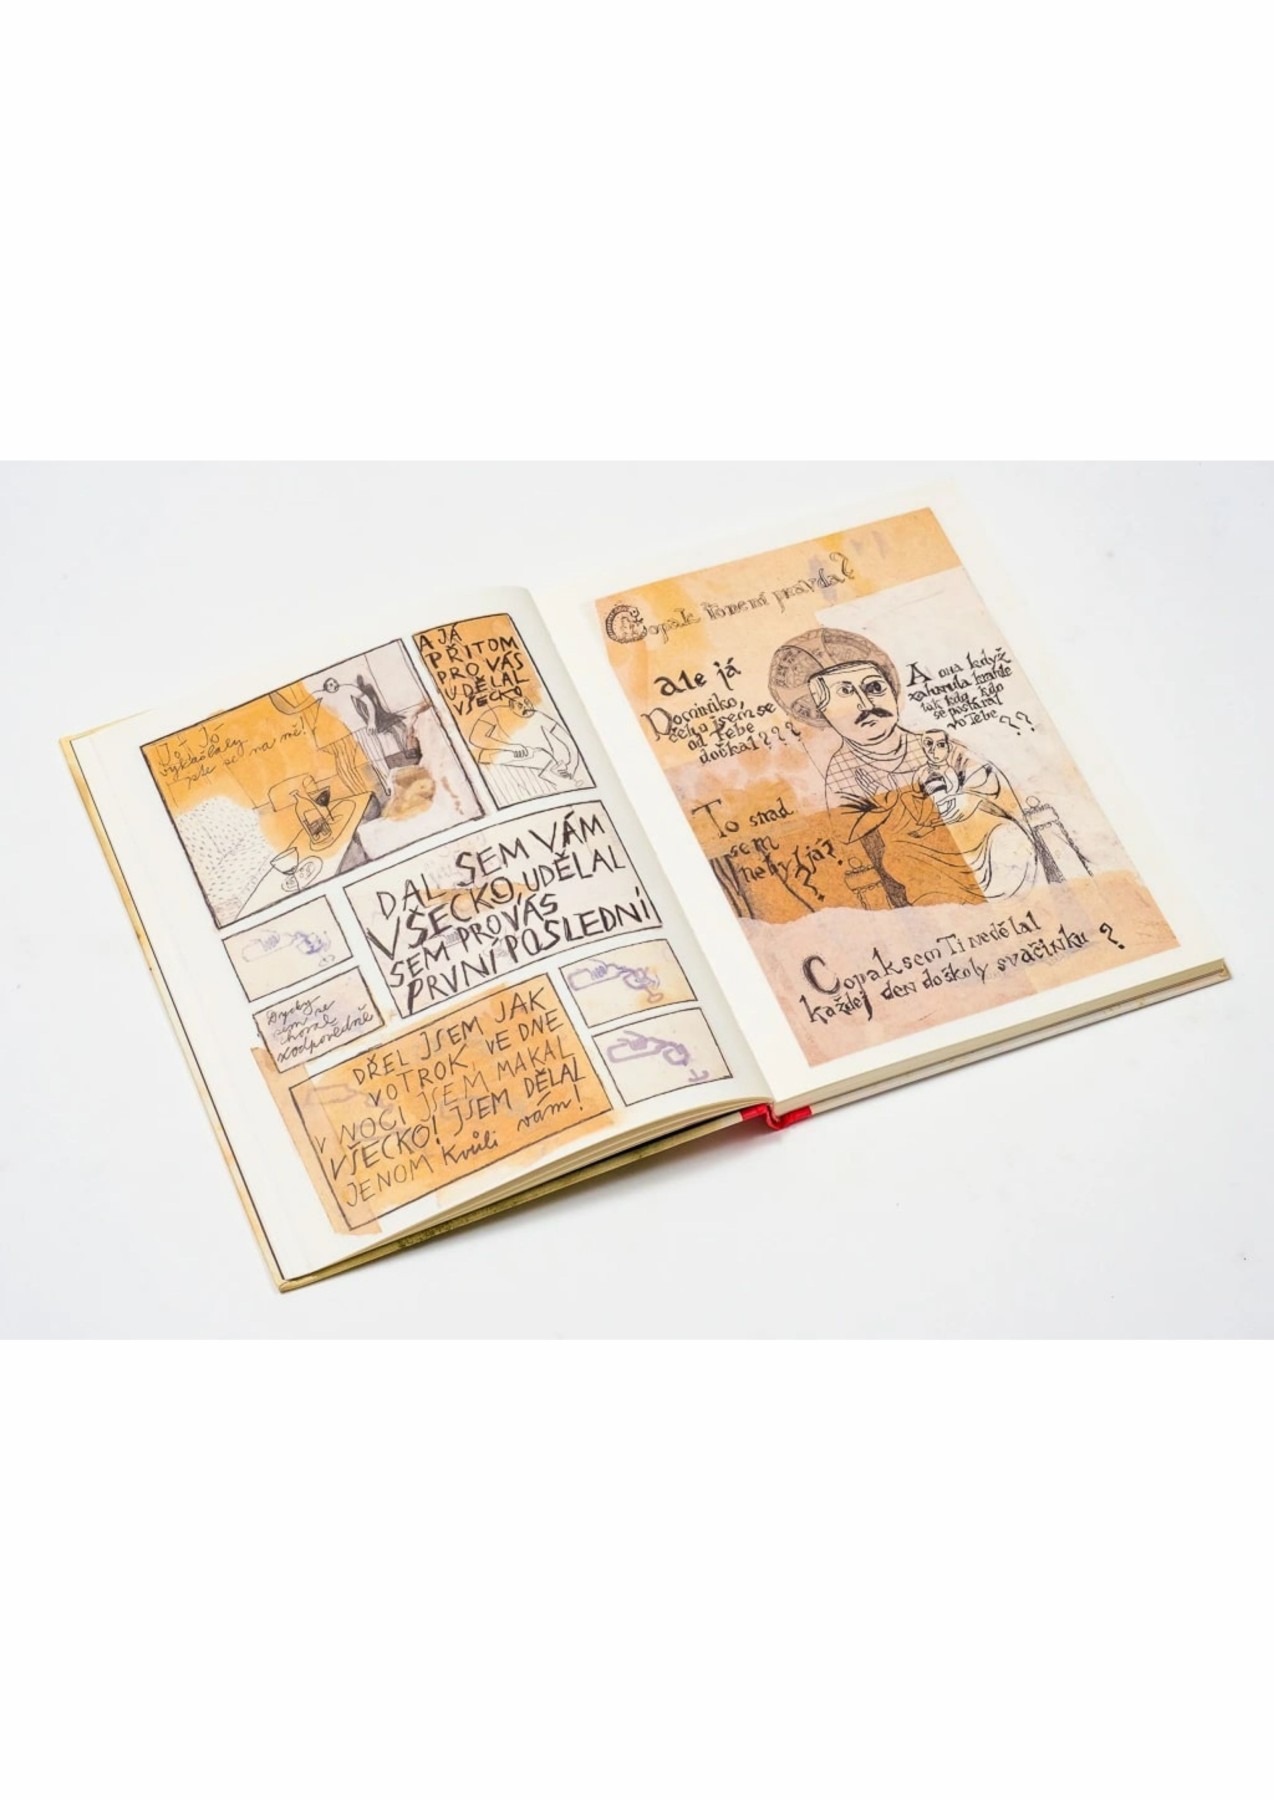 Jó, Jó
vykašlaly
jste se na mě!
A JÁ
PŘITOM
PRO VÁS
UDĚLAL
VŠECKO
DAL SEM VÁM
VŠECKO, UDĚLAL
SEM PRO VÁS
PRVNÍ POSLEDNÍ
Dycky
sem se
choval
zodpovědně
DŘEL JSEM JAK
OTROK, VE DNE
V NOCI JSEM MAKAL
VŠECKO! JSEM DĚLAL
JENOM kvůli vám!
Copak to není pravda?
ale já
Dominiko,
čeho jsem se
od Tebe
dočkal???
A ona když
zahynula
tak kdo
se postaral
vo Tebe??
To snad
sem
nebyl já?
?
Copak sem Ti nedělal
každej den do školy svačinku?